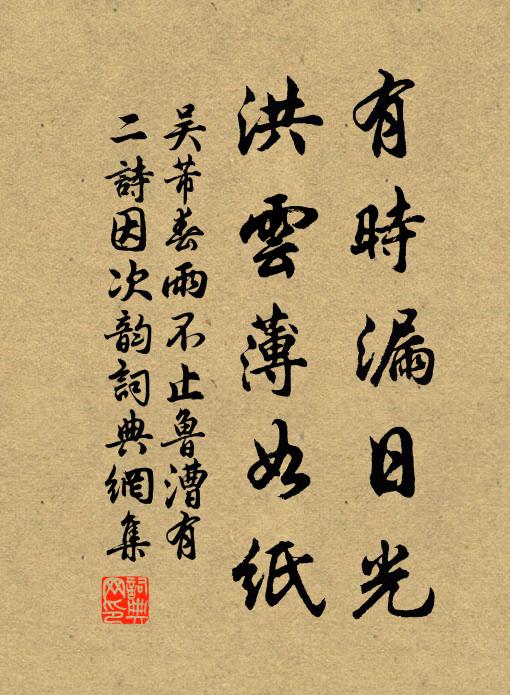 有時漏日光
洪雲薄如紙
吴芾春雨不止魯漕有
二詩因次韵詞典網集
詞典
网印